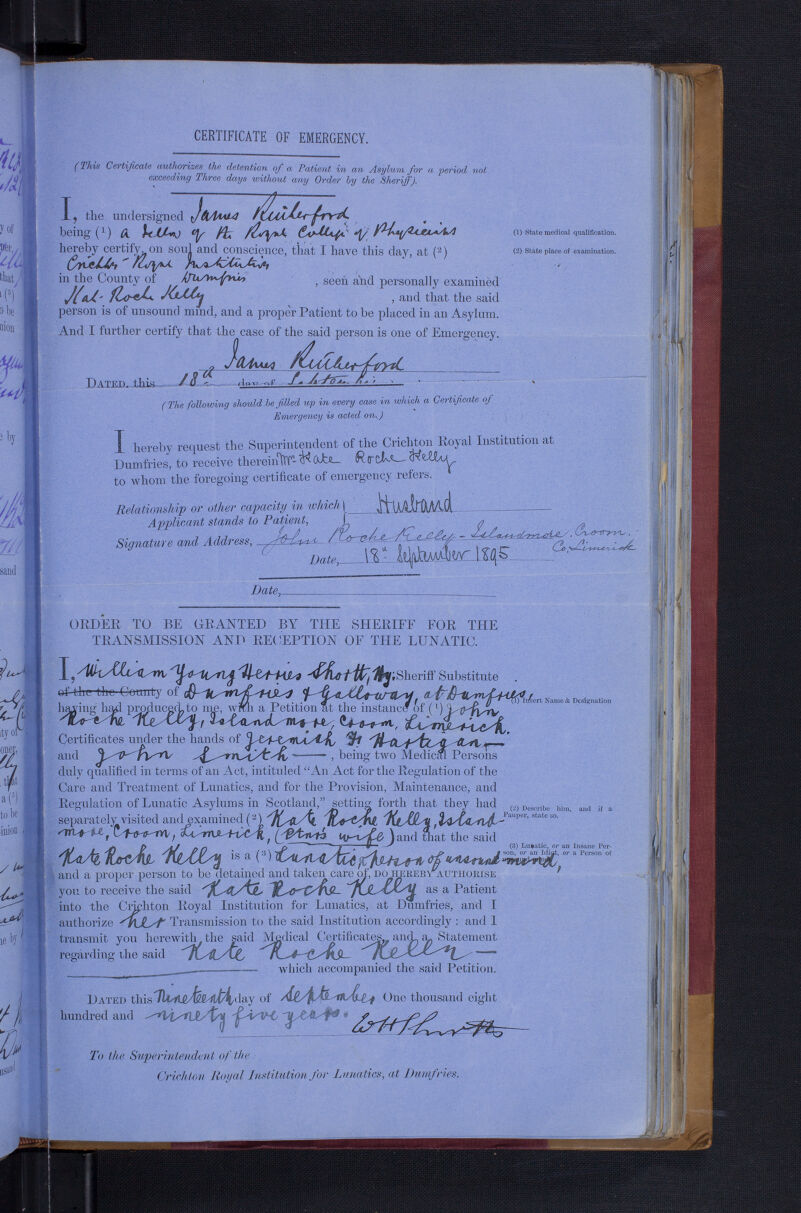 CERTIFICATE OF EMERGENCY.
(This Certificate authorizes the detention of a Patient in an Asylum for a period not
exceeding Three days without any Order by the Sheriff).
I, the undersigned James Rutherford
being (1) a Fellow of the Royal College of Physicians
(1) State medical qualification.
hereby certify, on soul and conscience, that I have this day, at (2)
(2) State place of examination.
Crichton Royal Institution
in the County of Dumfries , seen and personally examined
Kate Roche Kelly , and that the said
person is of unsound mind, and a proper Patient to be placed in an Asylum.
And I further certify that the case of the said person is one of Emergency.
James Rutherford
DATED, this 18th day of September
(The following should be filled up in every case in which a Certificate of
Emergency is acted on.)
I hereby request the Superintendent of the Crichton Royal Institution at
Dumfries, to receive therein Mrs Kate Roche Kelly
to whom the foregoing certificate of emergency refers.
Relationship or other capacity in which Husband
Applicant stands to Patient,
Signature and Address, John Roche Kelly - Islandmore. Croom.
Co. Limerick
Date, 18th September 1895
Date,
ORDER TO BE GRANTED BY THE SHERIFF FOR THE
TRANSMISSION AND RECEPTION OF THE LUNATIC.
I, William Young Herries Shortt, Sheriff Substitute
of the the County of Dumfries & Galloway, at Dumfries,
having had produced to me, with a Petition at the instance of (1) John
(1) Insert Name & Designation
Roche Kelly, Island more, Croom, Limerick.
Certificates under the hands of Jeremiah Hartigan
and John Smith , being two Medical Persons
duly qualified in terms of an Act, intituled "An Act for the Regulation of the
Care and Treatment of Lunatics, and for the Provision, Maintenance, and
Regulation of Lunatic Asylums in Scotland," setting forth that they had
separately visited and examined (2) Kate Roche Kelly, Island-
(2) Describe him, and if a Pauper, state so.
more, Croom, Limerick, (Petnrs wife) and that the said
Kate Roche Kelly is a (3) Lunatic, person of unsound mind,
(3) Lunatic, or an Insane Person, or an Idiot, or a Person of
and a proper person to be detained and taken care of, DO HEREBY AUTHORISE
you to receive the said Kate Roche Kelly as a Patient
into the Crichton Royal Institution for Lunatics, at Dumfries, and I
authorize her Transmission to the said Institution accordingly : and I
transmit you herewith the said Medical Certificates, and a Statement
regarding the said Kate Roche Kelly
which accompanied the said Petition.
DATED this Nineteenth day of September One thousand eight
hundred and ninety five years.
To the Superintendent of the
Crichton Royal Institution for Lunatics, at Dumfries.